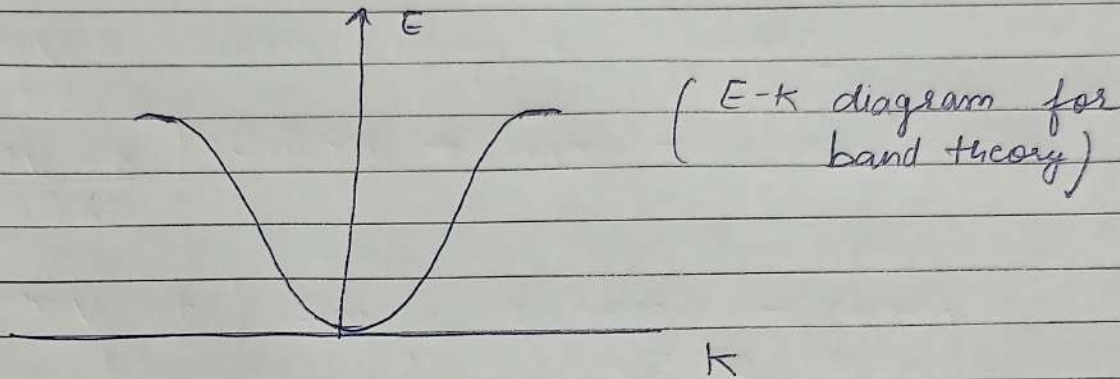 E
( E-K diagram for
band theory)
K